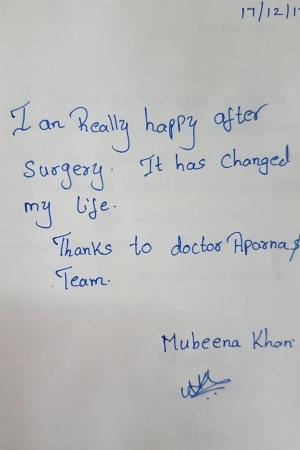 17/12/1
I an Really happy after
Surgery. It has Changed
my life.
Thanks to doctor Aparna &
Team.
Mubeena Khan.